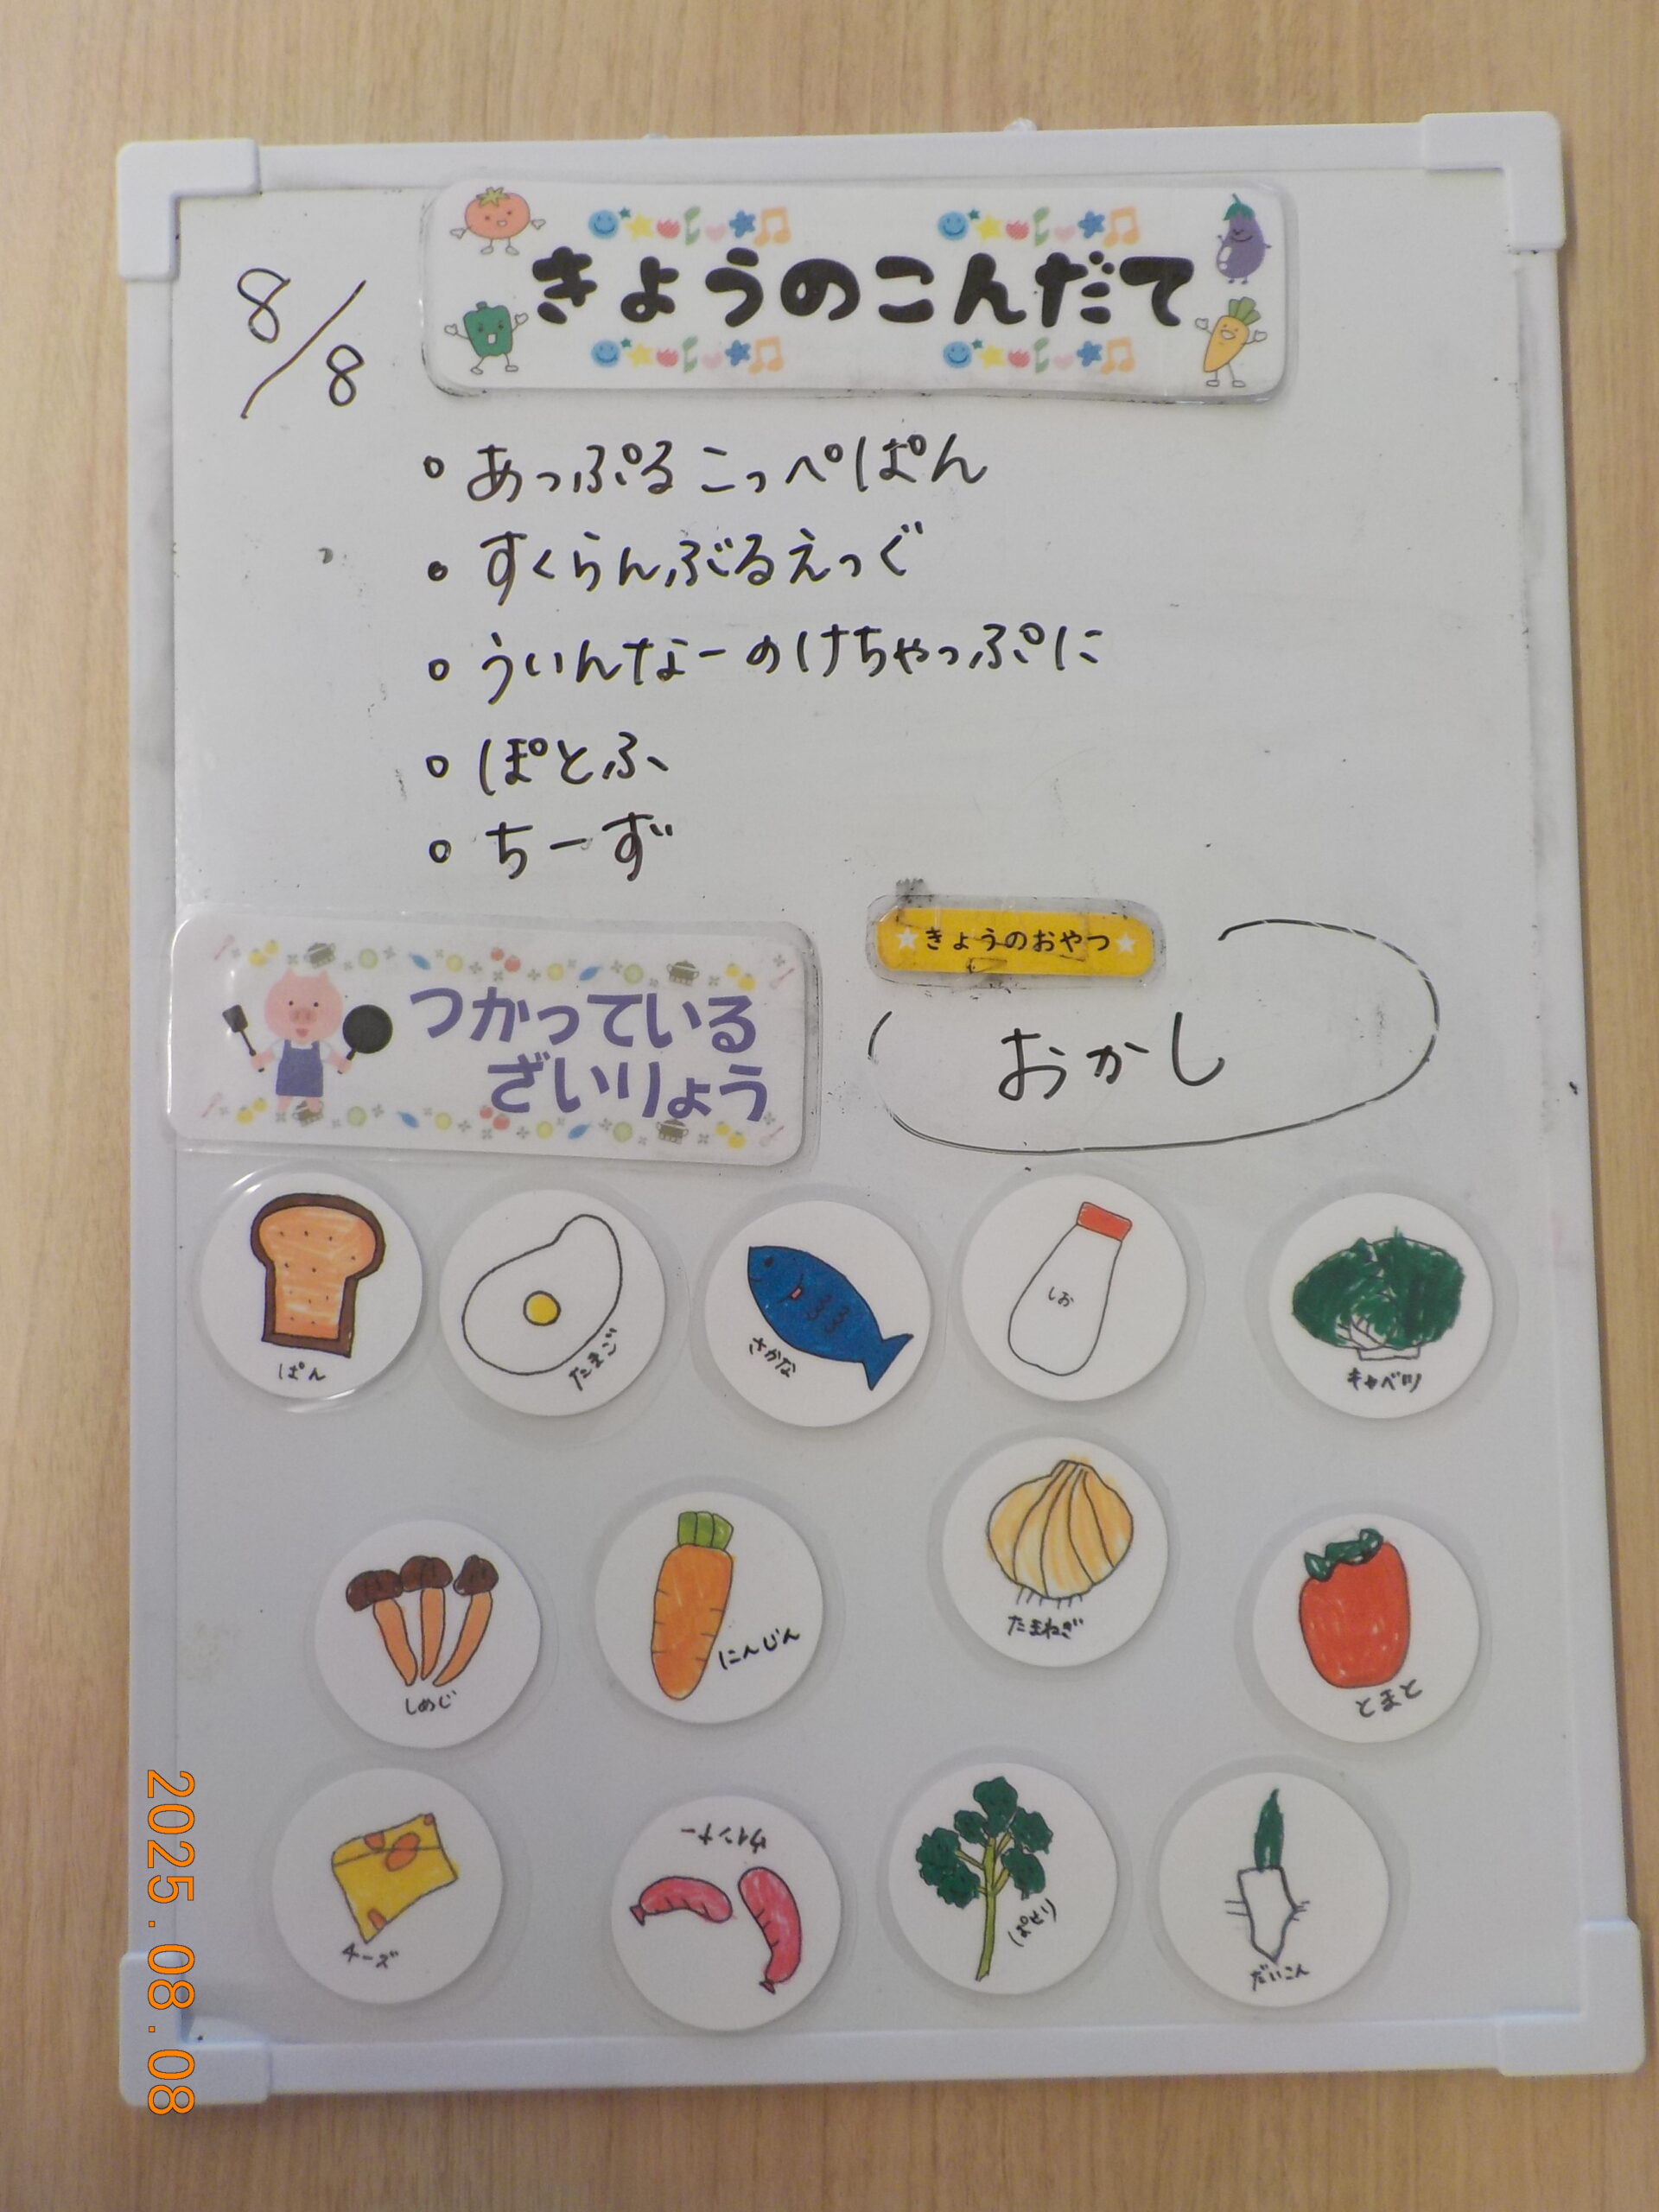 8/8
きょうのこんだて
・あっぷるこっぺぱん
・すくらんぶるえっぐ
・ういんなーのけちゃっぷに
・ぽとふ
・ちーず
きょうのおやつ
おかし
つかっている
ざいりょう
ぱん
たまご
さかな
しお
キャベツ
しめじ
にんじん
たまねぎ
とまと
チーズ
ウインナー
ぱせり
だいこん
2025.08.08